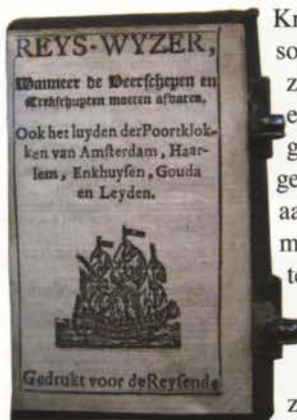 REYS-WYZER,
Wanneer de Veerschepen en
Trekschuyten moeten afvaren.
Ook het luyden der Poortklok-
ken van Amsterdam, Haar-
lem, Enkhuysen, Gouda
en Leyden.
Gedrukt voor de Reysende